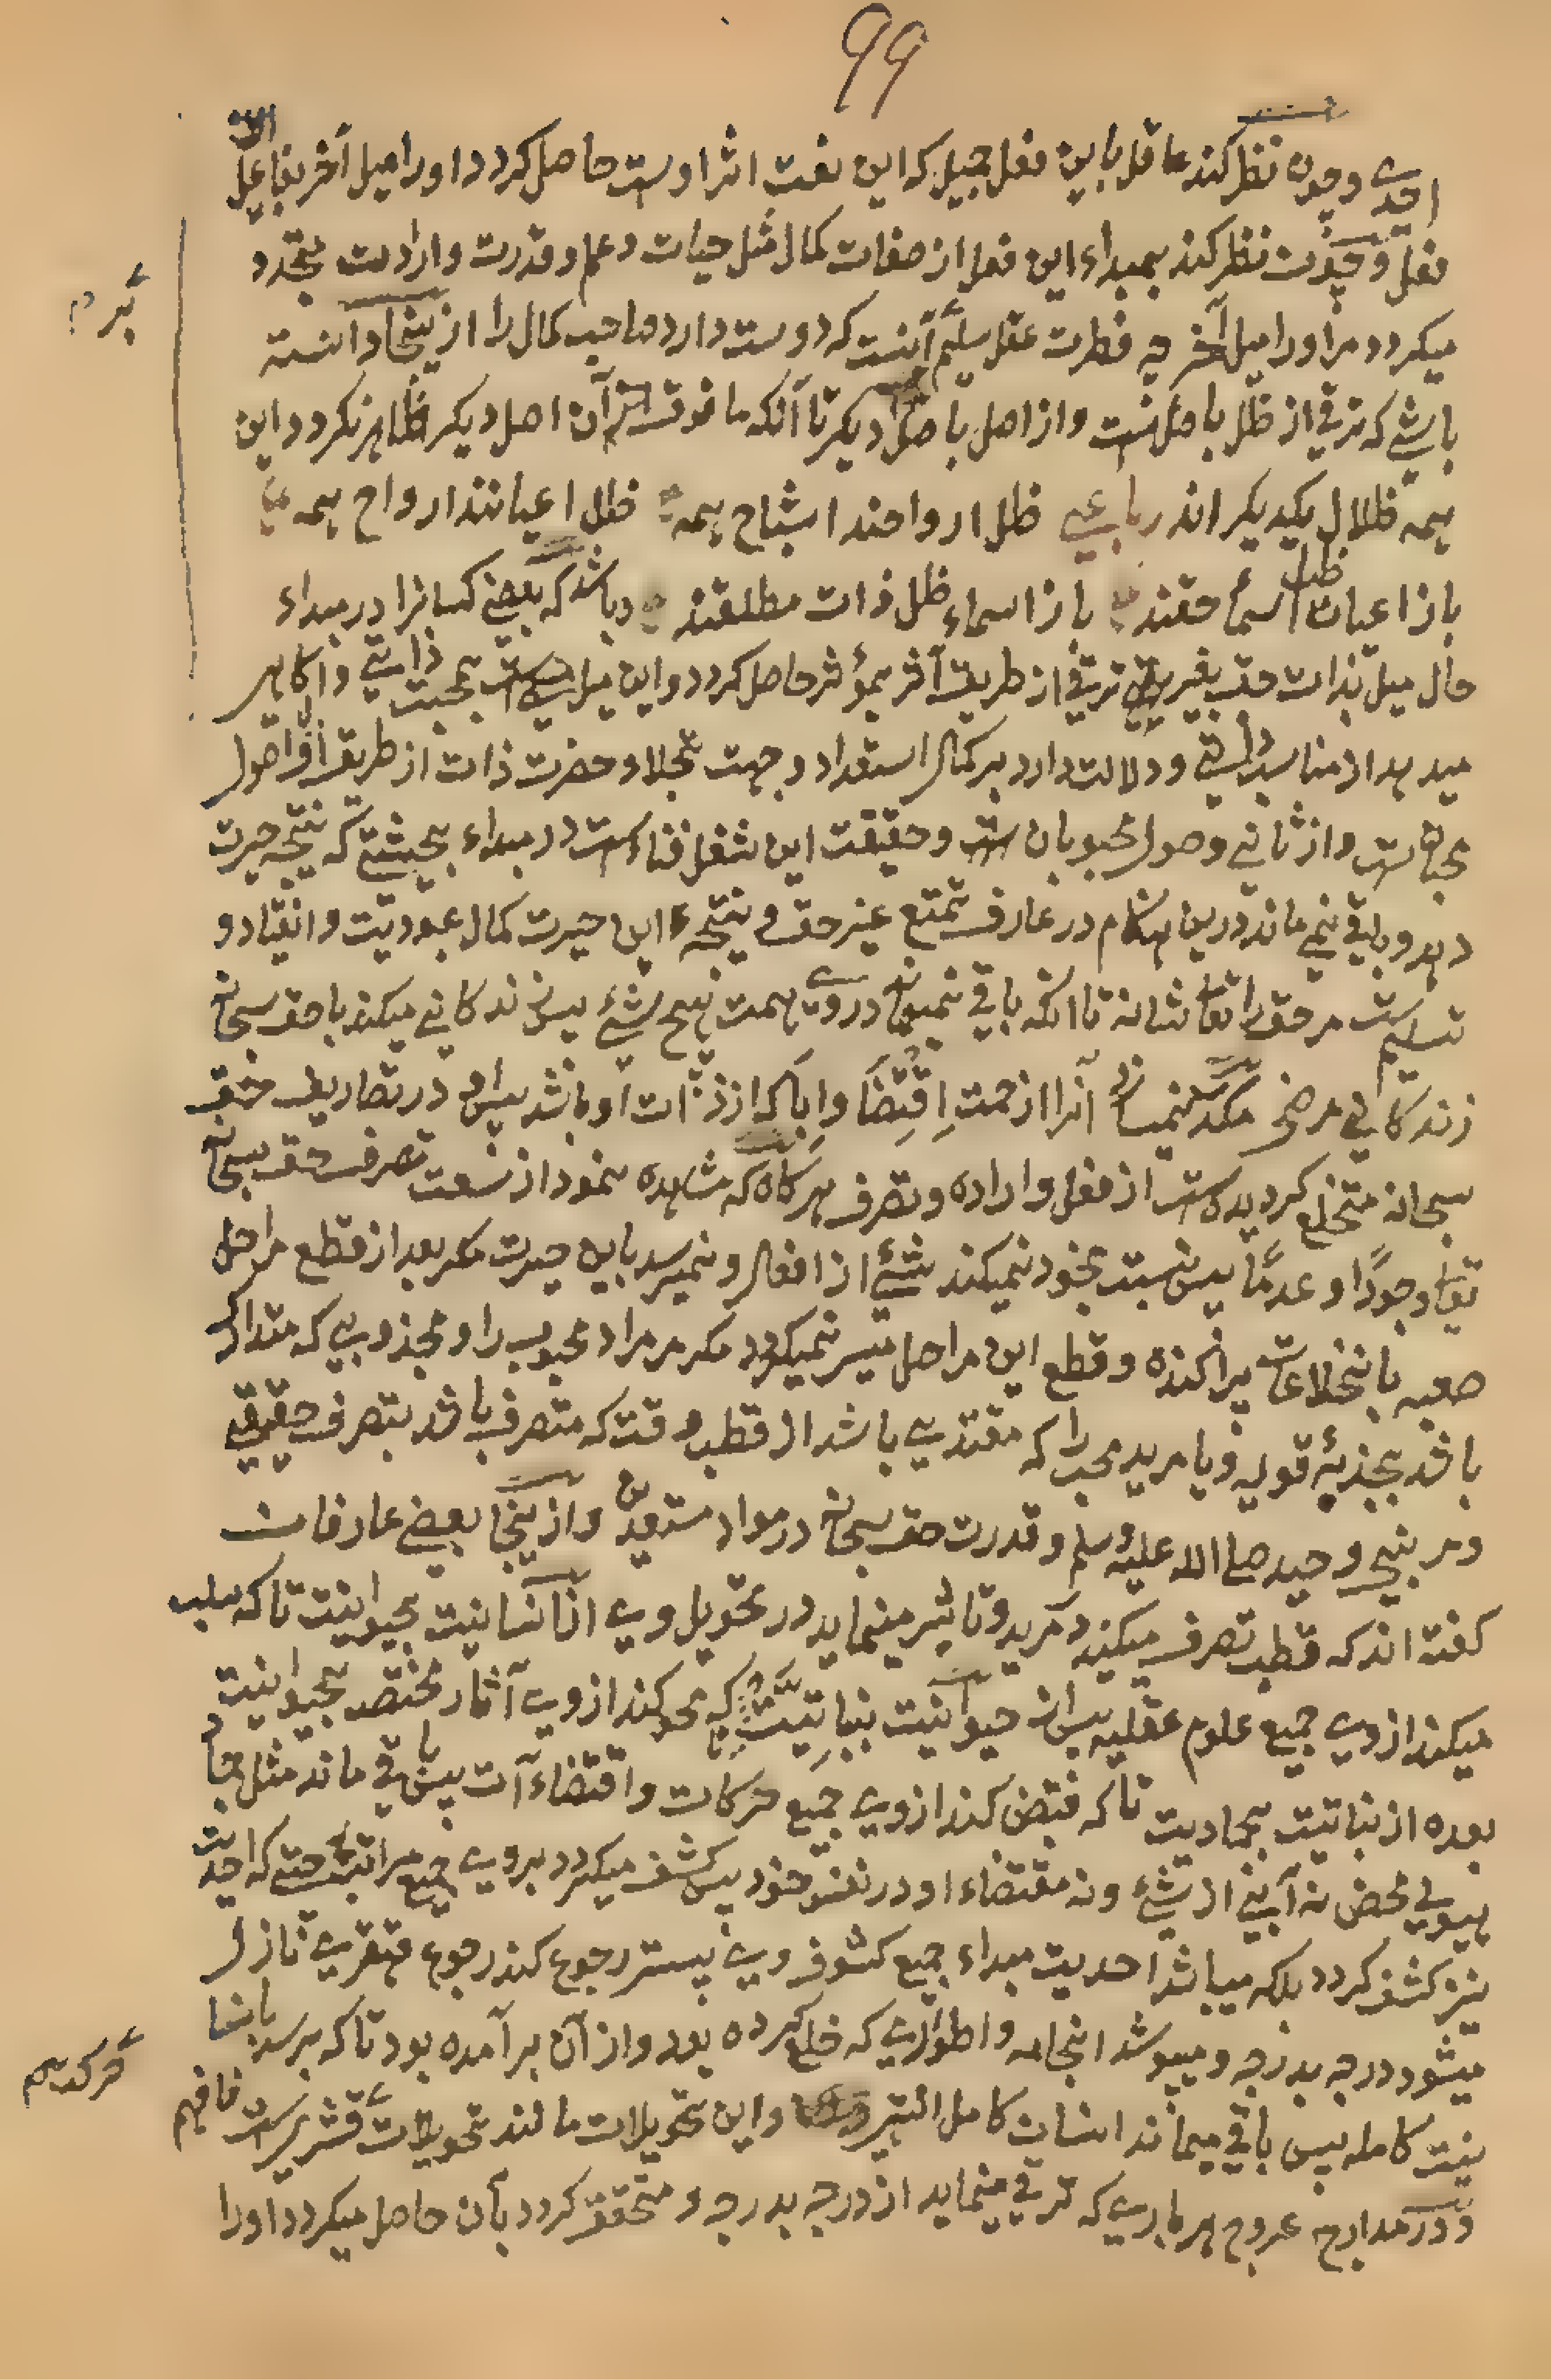 ۹۹
احدے وچون نظر کند عاقل باین فعل جمیل که این نعت اثر اوست حاصل کردد اورا میل آخر بفاعل
فعل وچون نظر کند بمبداء این فعل از صفات کمال مثل حیات وعلم وقدرت وارادت متجدد
میکردد مر اورا میل آخر چه فطرت عقل سلیم آنست که دوست دارد صاحب کمال را ازینجا دانسته
باشی که ترقی از ظل باصل ست واز اصل باصل دیکر تا آنکه ما فوق آن اصل دیکر ظاهر نکردد واین
همه ظلال یکدیکر اند رباعی ظل ارواحند اشباح همه ظل اعیانند ارواح همه
باز اعیان ظل اسمأ حقند باز اسماء ظل ذات مطلقند وباشد که بعضی کسانرا در مبداء
حال میل بذات حق بغیر ترقی از طریق آخر بمؤثر حاصل کردد واین میل مسمی ست بمحبت ذاتی واکاهی
میدهد از مناسبت ودلالت دارد بر کمال استعداد وجهت تجلاء حضرت ذات از طریق اول وصول
محبان ست واز ثانی وصول محبوبان ست وحقیقت این شغل فناء ست در مبداء بحیثیتی که نتیجه حیرت
دهد وباقی نمی ماند درین هنکام در عارف تمتع غیر حق ونتیجهء این حیرت کمال عبودیت وانقیاد و
تسلیم ست مر حق را تعالی شانه تا آنکه باقی نمیماند در وی همت هیچ شئ پس زندکانی میکند با حق سبحانه
زندکانی مرضی مکدر نمیسازد آنرا زحمت اِقتِضَا واِباکه از ذات او باشد پس او در تصاریف حق
سبحانه متخلع کردیده ست از فعل واراده وتصرف هرکاه که مشاهده نمود از سعت تصرف حق سبحانه
تعالی وجودًا وعدمًا پس نسبت بخود نمیکند شئ از افعال ونمیرسد باین حیرت مکر بعد از قطع مراحل
صعبه بانخلاعات پراکنده وقطع این مراحل میسر نمیکردد مکر مر مراد محبوب را ومجذوبی که متدارک
باشد بجذبهٔ قویه ویا مرید محب را که مقتدی باشد از قطب وقت که متصرف باشد بتصرف حقیقی
ومر بنبی وحید صلی الله علیه وسلم وقدرت حق سبحانه در مواد مستعدین وازینجا بعضی عارفان
کفته اند که قطب تصرف میکند در مرید وتاثیر مینماید در تحویل وی از انسانیت بحیوانیت تا که سلب
میکند از وی جمیع علوم عقلیه پس از حیوانیت بنباتِیّت تا که محو کند از وی آثار مختصه بحیوانیت
بعده از نباتیت بجمادیت تا که قبض کند از وی جمیع حرکات واقتضاءآت پس باقی ماند مثل جماد
هیولی محض نه آبی از شئ ونه مقتضاء او در نفس خود پس کشف میکردد بروی جمیع مراتب حتی که احدیت
نیز کشف کردد بلکه میباشد احدیت مبداء جمیع کشوف وی پستر رجوع کند رجوع قهقری نازل
میشود درجه بدرجه ومیپوشد انجامه واطواری که خلع کرده بود واز آن برآمده بود تا که برسد بانسا
نیت کامله پس باقی میماند انسان کامل واین تحویلات مانند تحویلات قشری ست فافهم
ودر مدارج عروج هر باری که ترقی مینماید از درجه بدرجه ومتحقق کردد بآن حاصل میکردد اورا